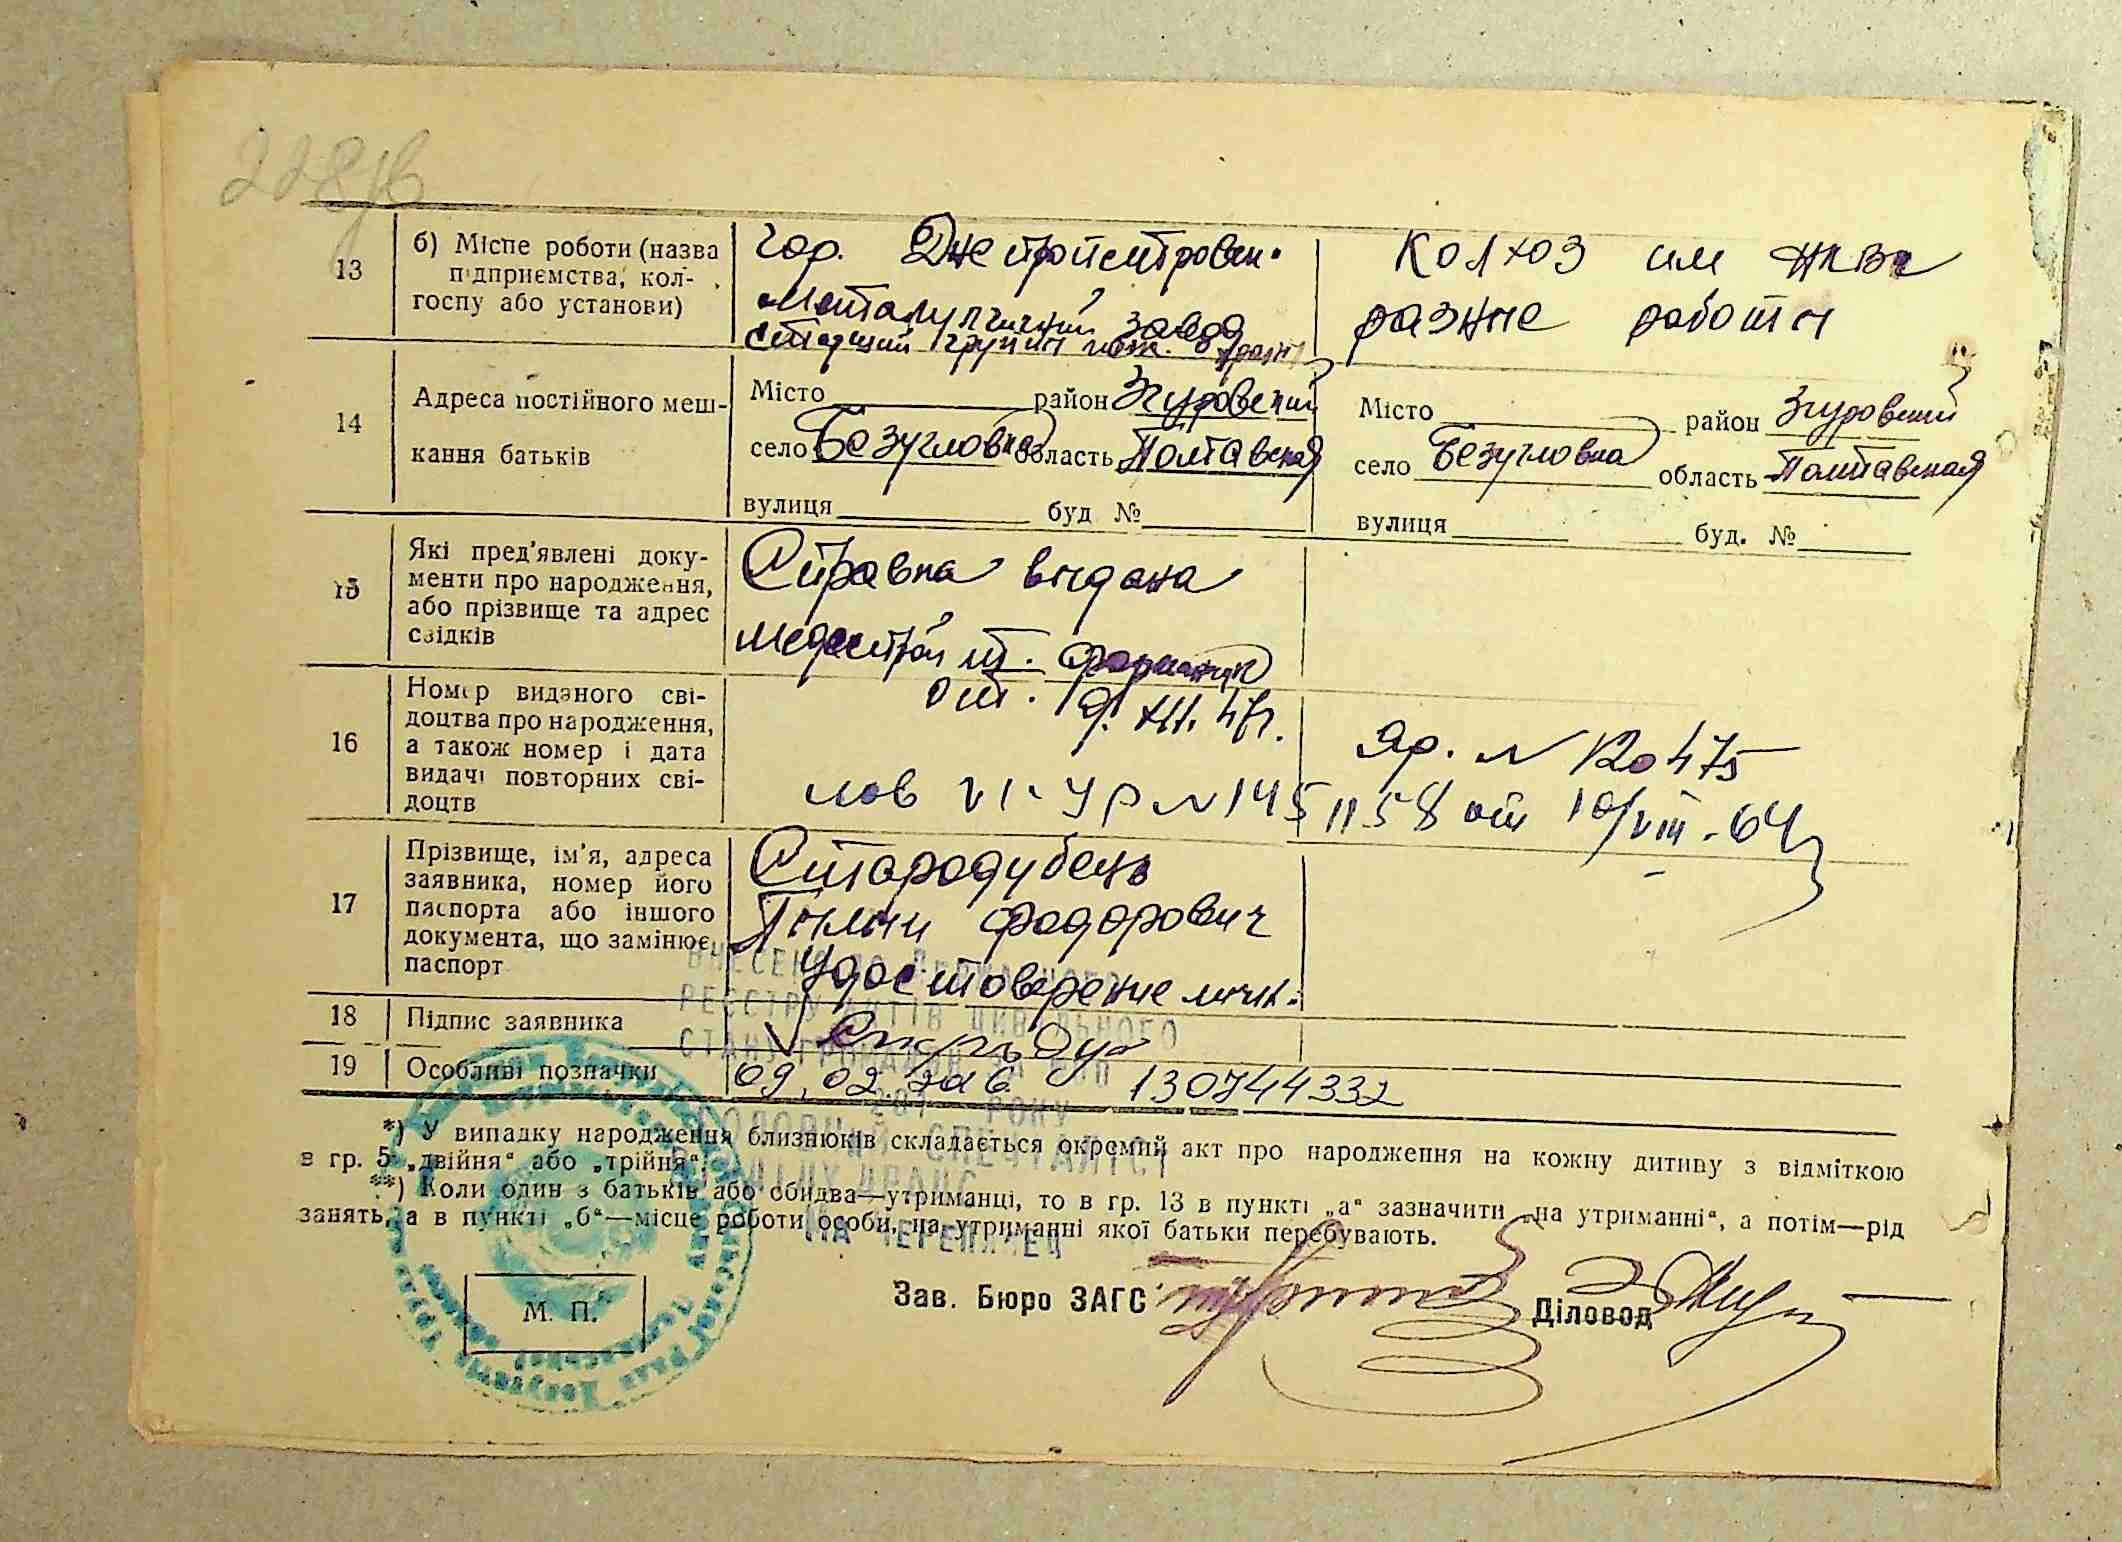 228/в
13
б) Місце роботи (назва
підприємства, кол-
госпу або установи)
гор. Днепропетровск.
Металургичний завод
старший групи пож. охрани
Колхоз им НКВД
разные работы
14
Адреса постійного меш-
кання батьків
Місто район Згуровский
село Безугловка область Полтавская
вулиця буд №
Місто район Згуровский
село Безугловка область Полтавская
вулиця буд. №
15
Які пред'явлені доку-
менти про народження,
або прізвище та адрес
свідків
Справка видана
медсестрой
от. 9. XII. 47г.
16
Номер виданого сві-
доцтва про народження,
а також номер і дата
видачі повторних сві-
доцтв
ЯР. N 120475
пов VI-УР N 1451158 от 10/VIII-64
17
Прізвище, ім'я, адреса
заявника, номер його
паспорта або іншого
документа, що замінює
паспорт
Стародубець
Пилип Федорович
Удостоверение личн.
18
Підпис заявника
Стародуб
19
Особливі позначки
09.02.2016 130744332
ВНЕСЕНО ДО ДЕРЖАВНОГО
РЕЄСТРУ АКТІВ ЦИВІЛЬНОГО
СТАНУ ГРОМАДЯН ЗА
201 РОКУ
ГОЛОВНИЙ СПЕЦІАЛІСТ
ВІДДІЛУ ДРАЦС
*) У випадку народження близнюків складається окремий акт про народження на кожну дитину з відміткою
в гр. 5 „двійня" або „трійня".
**) Коли один з батьків або обидва—утриманці, то в гр. 13 в пункті „а" зазначити „на утриманні", а потім—рід
занять, а в пункті „б"—місце роботи особи, на утриманні якої батьки перебувають.
Зав. Бюро ЗАГС
Діловод
М. П.